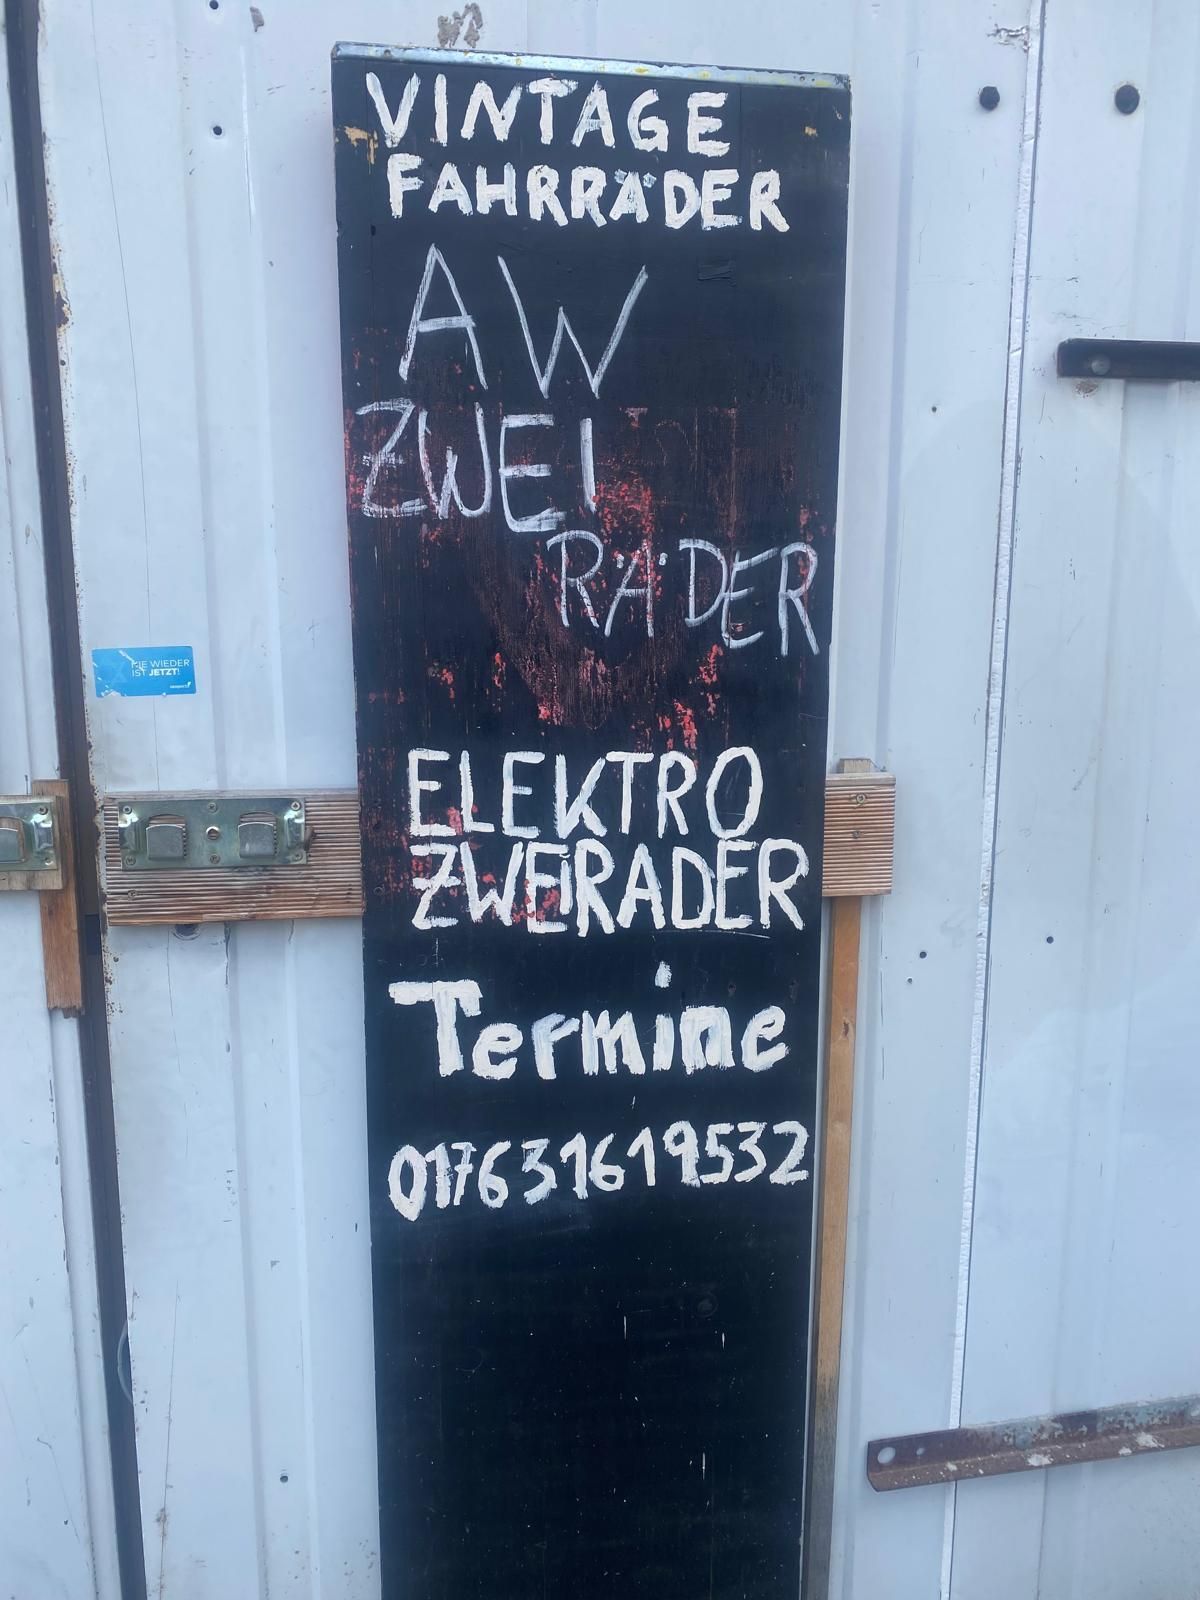 VINTAGE
FAHRRÄDER
AW
ZWEI
RÄDER
ELEKTRO
ZWEIRADER
Termine
017631619532
NIE WIEDER
IST JETZT!